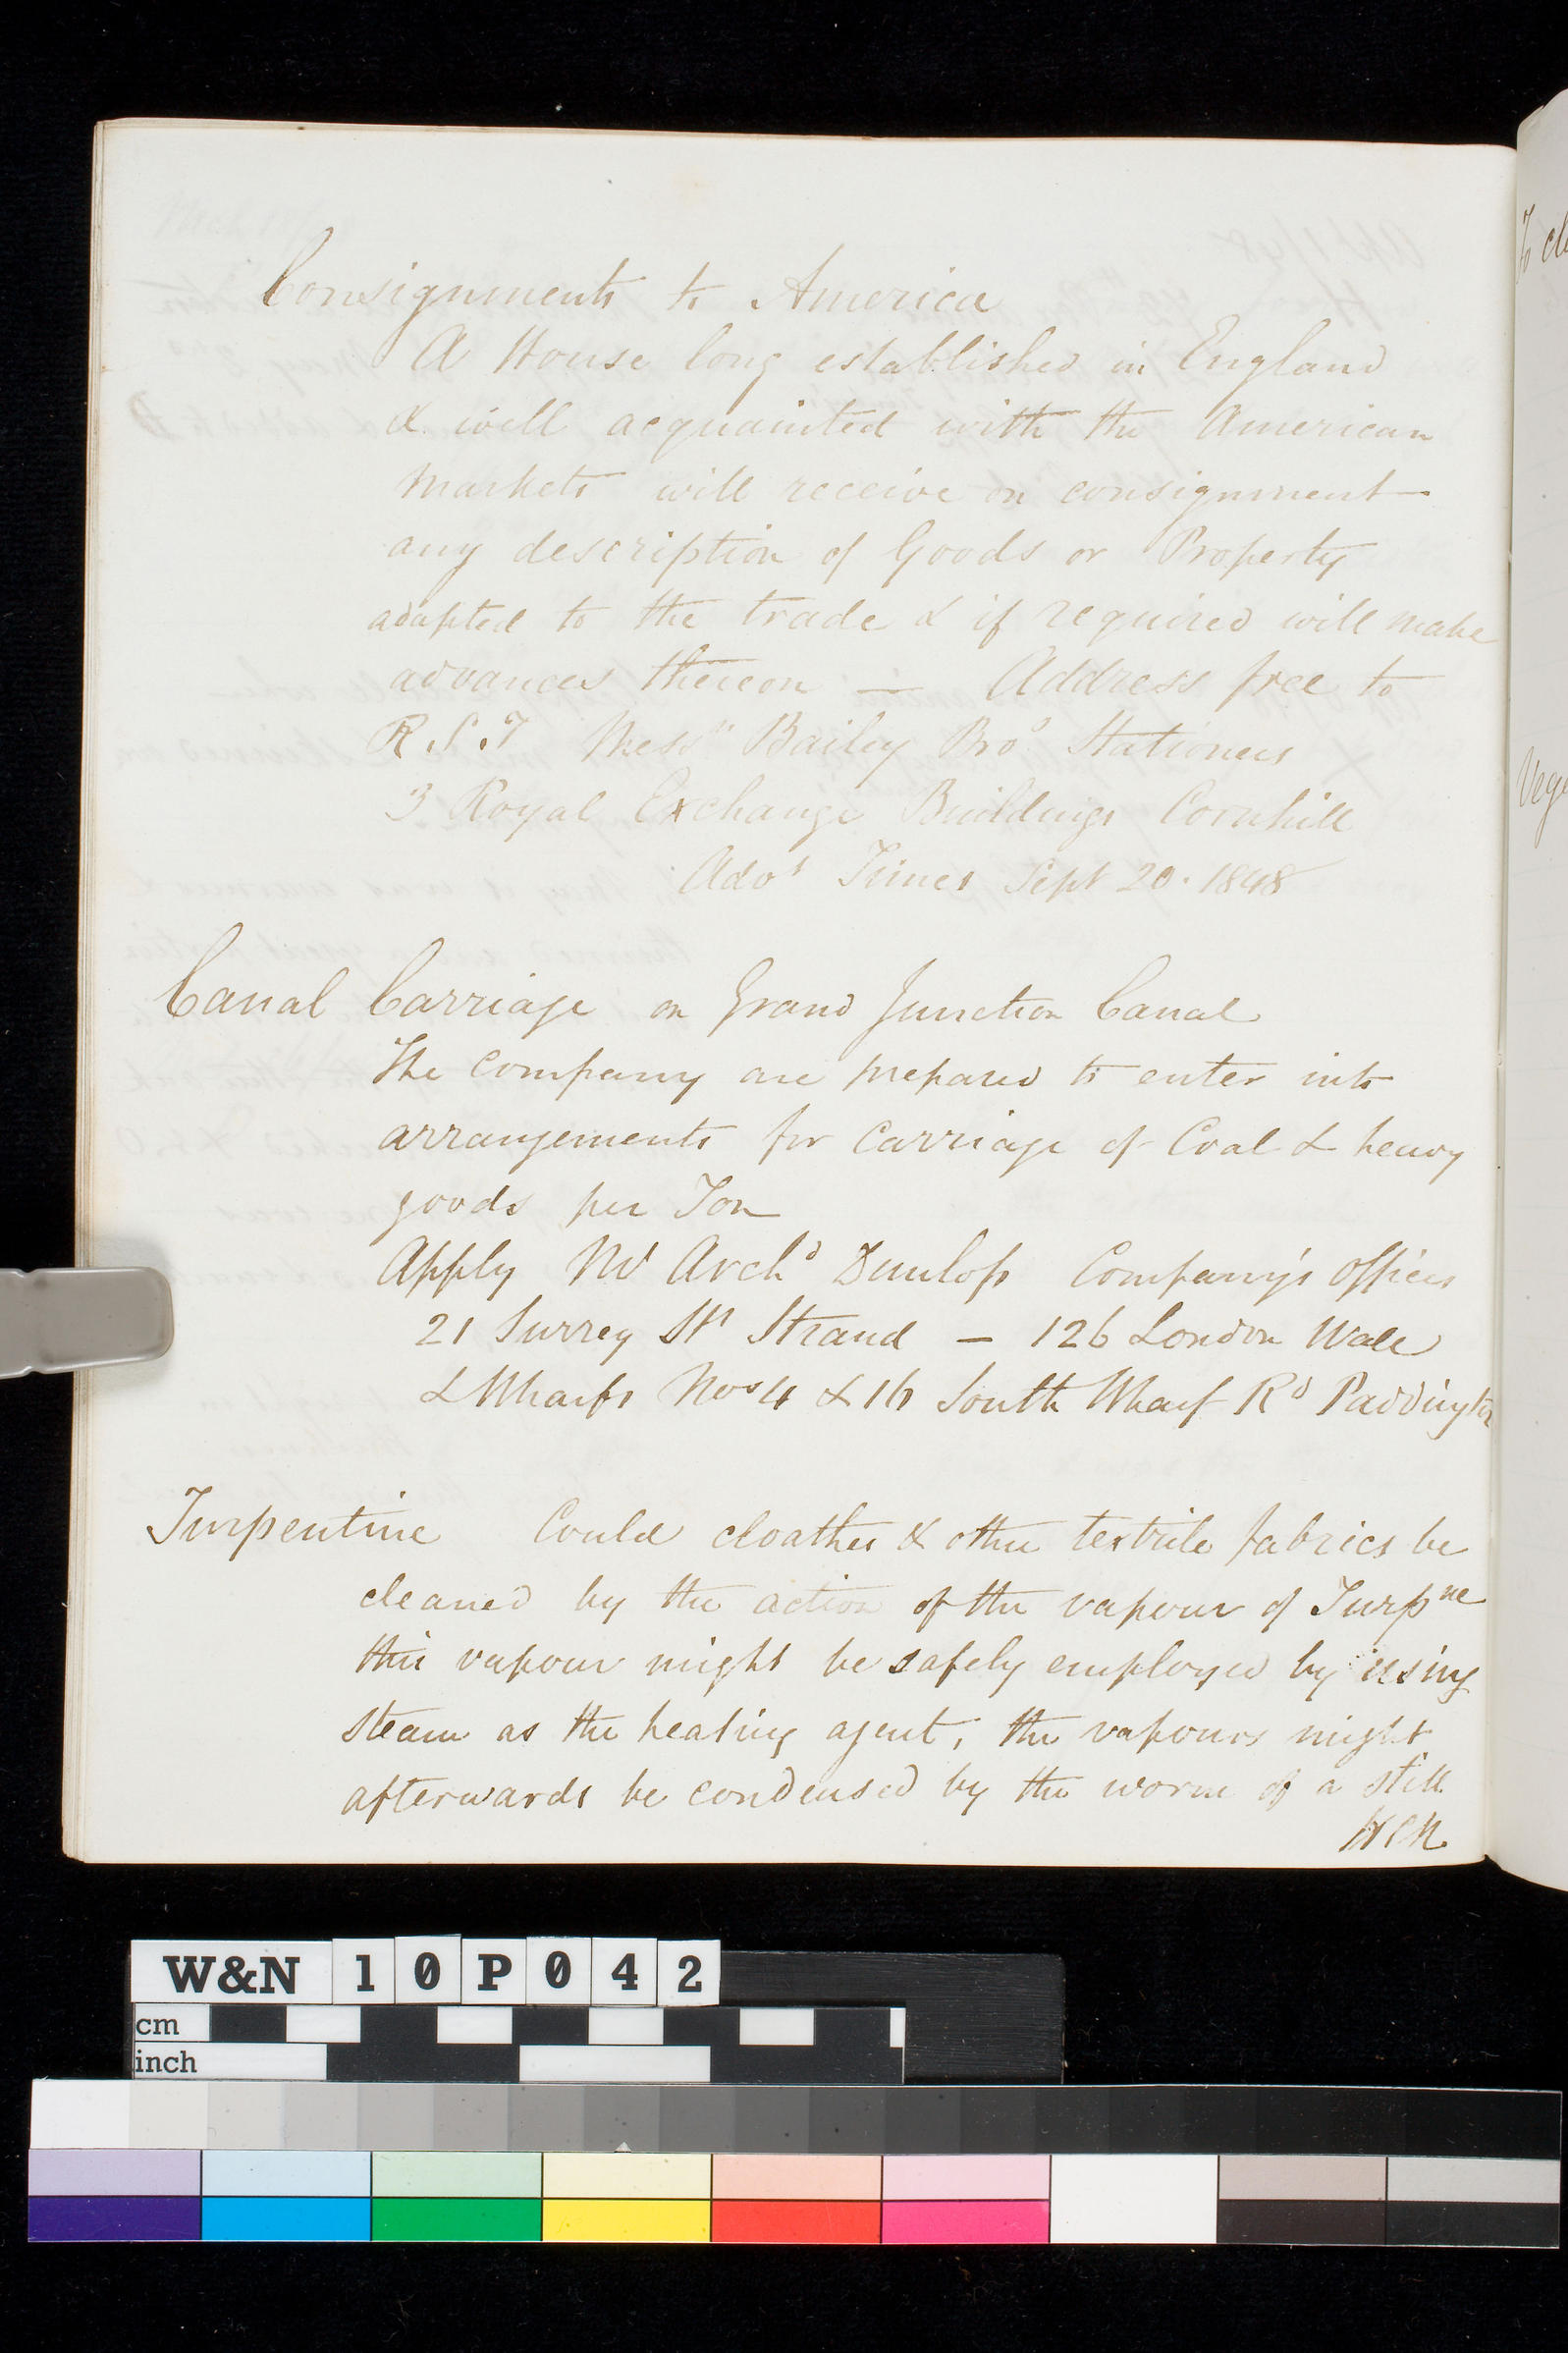 Consignments to America
A House long established in England
& well acquainted with the American
Markets will receive on consignment
any description of Goods or Property
adapted to the trade & if required will make
advances thereon — Address free to
R.S.T Messrs Bailey Bros Stationers
3 Royal Exchange Buildings Cornhill
Advt Times Sept 20. 1848
Canal Carriage on Grand Junction Canal
The Company are prepared to enter into
arrangements for Carriage of Coal & heavy
goods per Ton
Apply Mr Archd Dunlop Company's Offices
21 Surrey St Strand — 126 London Wall
& Wharfs Nos 4 & 16 South Wharf Rd Paddington
Turpentine Could cloathes & other textile fabrics be
cleaned by the action of the vapour of Turpne
this vapour might be safely employed by using
steam as the heating agent, the vapours might
afterwards be condensed by the worm of a still
HCN
To cl
Vege
W&N 10P042
cm
inch